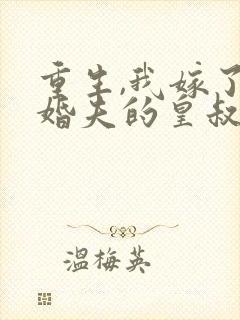 重生,我嫁了
婚夫的皇叔
温梅英